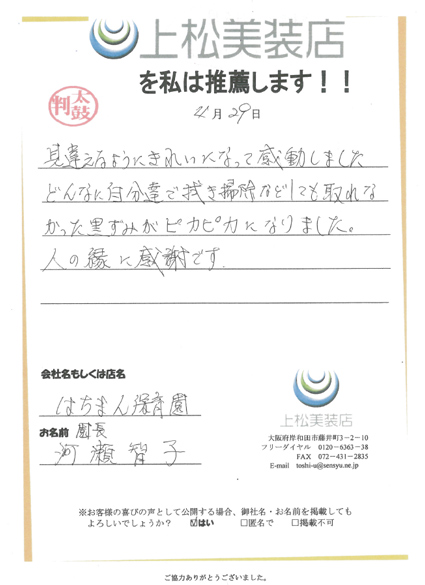 上松美装店
を私は推薦します！！
太鼓判
4月29日
見違えるようにきれいになって感動しました
どんなに自分達で拭き掃除などしても取れな
かった黒ずみがピカピカになりました。
人の縁に感謝です.
会社名もしくは店名
はちまん保育園
お名前 園長
河瀬智子
上松美装店
大阪府岸和田市藤井町3－2－10
フリーダイヤル 0120－6363－38
FAX 072－431－2835
E-mail toshi-u@sensyu.ne.jp
※お客様の喜びの声として公開する場合、御社名・お名前を掲載しても
よろしいでしょうか？ ☑はい □匿名で □掲載不可
ご協力ありがとうございました。